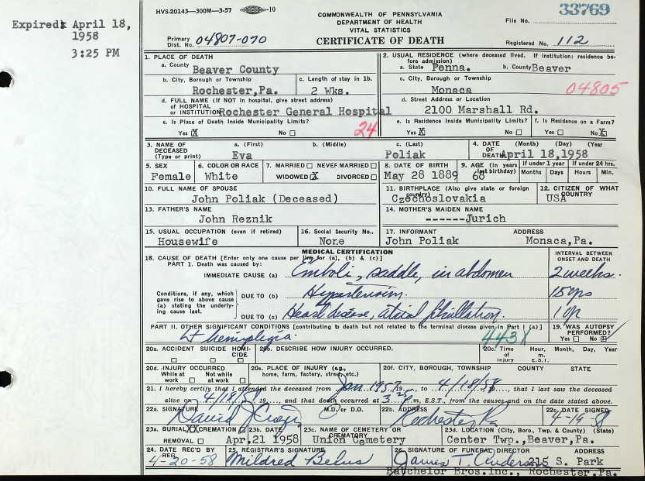 Expired: April 18,
1958
3:25 PM
HVS-20143—300M—3-57
COMMONWEALTH OF PENNSYLVANIA
DEPARTMENT OF HEALTH
VITAL STATISTICS
CERTIFICATE OF DEATH
File No. 33769
Primary Dist. No. 04807-070
Registered No. 112
1. PLACE OF DEATH
a. County Beaver County
b. City, Borough or Township Rochester,Pa.
c. Length of stay in 1b. 2 Wks.
d. FULL NAME (If NOT in hospital, give street address) OF HOSPITAL OR INSTITUTION Rochester General Hospital
e. Is Place of Death Inside Municipality Limits? Yes X No
24
2. USUAL RESIDENCE (where deceased lived. If institution: residence before admission)
a. State Penna. b. County Beaver
c. City, Borough or Township Monaca
04805
d. Street Address or Location 2100 Marshall Rd.
e. Is Residence Inside Municipality Limits? Yes X No
f. Is Residence on a Farm? Yes No X
3. NAME OF DECEASED (Type or print) a. (First) Eva b. (Middle) c. (Last) Poliak
4. DATE OF DEATH (Month) (Day) (Year) April 18,1958
5. SEX Female
6. COLOR OR RACE White
7. MARRIED NEVER MARRIED WIDOWED X DIVORCED
8. DATE OF BIRTH May 28 1889
9. AGE (In years last birthday) 68 If under 1 year Months Days If under 24 hrs. Hours Min.
10. FULL NAME OF SPOUSE John Poliak (Deceased)
11. BIRTHPLACE (Also give state or foreign country) Czechoslovakia
12. CITIZEN OF WHAT COUNTRY USA
13. FATHER'S NAME John Reznik
14. MOTHER'S MAIDEN NAME ------Jurich
15. USUAL OCCUPATION (even if retired) Housewife
16. Social Security No. None
17. INFORMANT ADDRESS John Poliak Monaca,Pa.
MEDICAL CERTIFICATION
18. CAUSE OF DEATH [Enter only one cause per line for (a), (b) & (c)]
INTERVAL BETWEEN ONSET AND DEATH
PART I. Death was caused by:
IMMEDIATE CAUSE (a) Emboli, saddle, in abdomen 2 weeks.
Conditions, if any, which gave rise to above cause (a) stating the underlying cause last.
DUE TO (b) Hypertension.
DUE TO (c) Heart disease, atrial fibrillation.
PART II. OTHER SIGNIFICANT CONDITIONS [contributing to death but not related to the terminal disease given in Part I (a)]
Lt hemiplegia
443X
19. WAS AUTOPSY PERFORMED? Yes No
20a. ACCIDENT SUICIDE HOMICIDE
20b. DESCRIBE HOW INJURY OCCURRED.
20c. Time of INJURY Hour, Month, Day, Year
20d. INJURY OCCURRED While at work Not while at work
20e. PLACE OF INJURY (e.g., home, farm, factory, street, etc.)
20f. CITY, BOROUGH, TOWNSHIP COUNTY STATE
21. I hereby certify that I attended the deceased from Jan 1957, to 4/18/58, that I last saw the deceased
alive on 4/18/58, and that death occurred at 3:25 m, E.S.T., from the causes and on the date stated above.
22a. SIGNATURE M.D. or D.O.
22b. ADDRESS Rochester Pa
22c. DATE SIGNED
23a. BURIAL CREMATION REMOVAL
23b. DATE Apr.21 1958
23c. NAME OF CEMETERY OR CREMATORY Union Cemetery
23d. LOCATION (City, Boro, Twp. & County) (State) Center Twp.,Beaver,Pa.
24. DATE REC'D BY REG. 4-20-58
25. REGISTRAR'S SIGNATURE Mildred
26. SIGNATURE OF FUNERAL DIRECTOR ADDRESS James T. 215 S. Park
Batchelor Bros.Inc., Rochester,Pa.